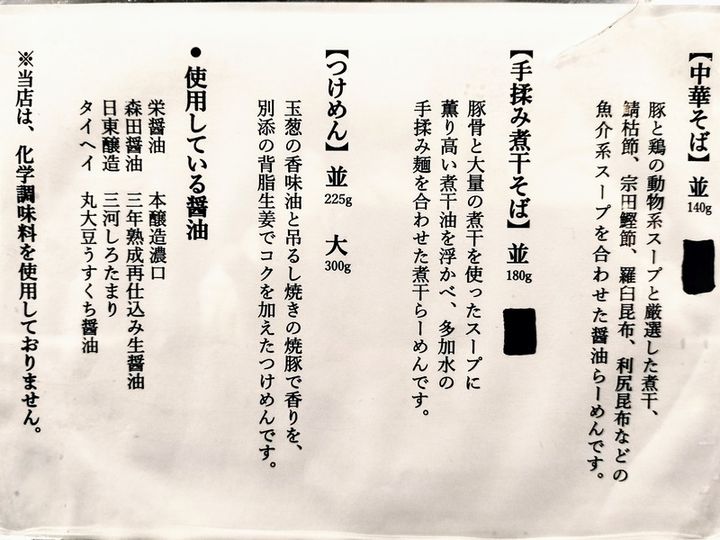 【中華そば】 並 140g
豚と鶏の動物系スープと厳選した煮干、
鯖枯節、宗田鰹節、羅臼昆布、利尻昆布などの
魚介系スープを合わせた醤油らーめんです。
【手揉み煮干そば】 並 180g
豚骨と大量の煮干を使ったスープに
薫り高い煮干油を浮かべ、多加水の
手揉み麺を合わせた煮干らーめんです。
【つけめん】 並 225g 大 300g
玉葱の香味油と吊るし焼きの焼豚で香りを、
別添の背脂生姜でコクを加えたつけめんです。
●使用している醤油
栄醤油 本醸造濃口
森田醤油 三年熟成再仕込み生醤油
日東醸造 三河しろたまり
タイヘイ 丸大豆うすくち醤油
※当店は、化学調味料を使用しておりません。